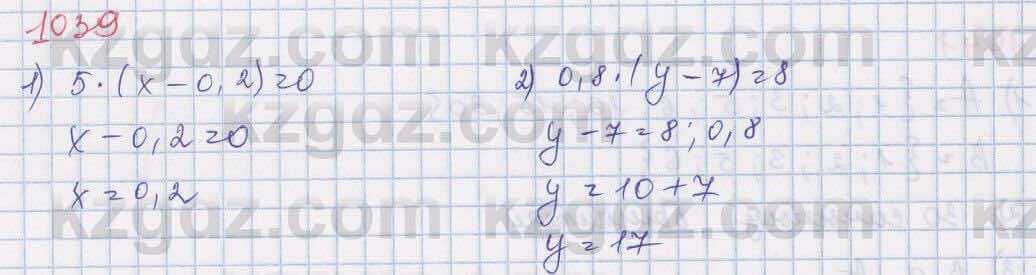 1039
1) 5·(x-0,2)=0
x-0,2=0
x=0,2
2) 0,8·(y-7)=8
y-7=8:0,8
y=10+7
y=17
kzgdz.com kzgdz.com
kzgdz.com kzgdz.com
kzgdz.com kzgdz.com